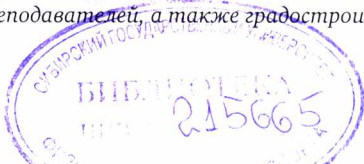 еподавателей, а также градострои
СИБИРСКИЙ ГОСУДАРСТВЕННЫЙ УНИВЕРСИТЕТ
БИБЛИОТЕКА
215665